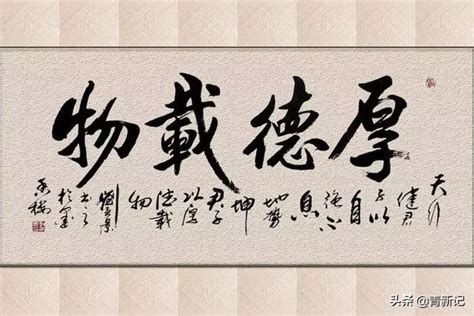 厚德載物
天行
健君
子以
自
强不
息
地势
坤
君子
以厚
德載
物
头条 @菁新记